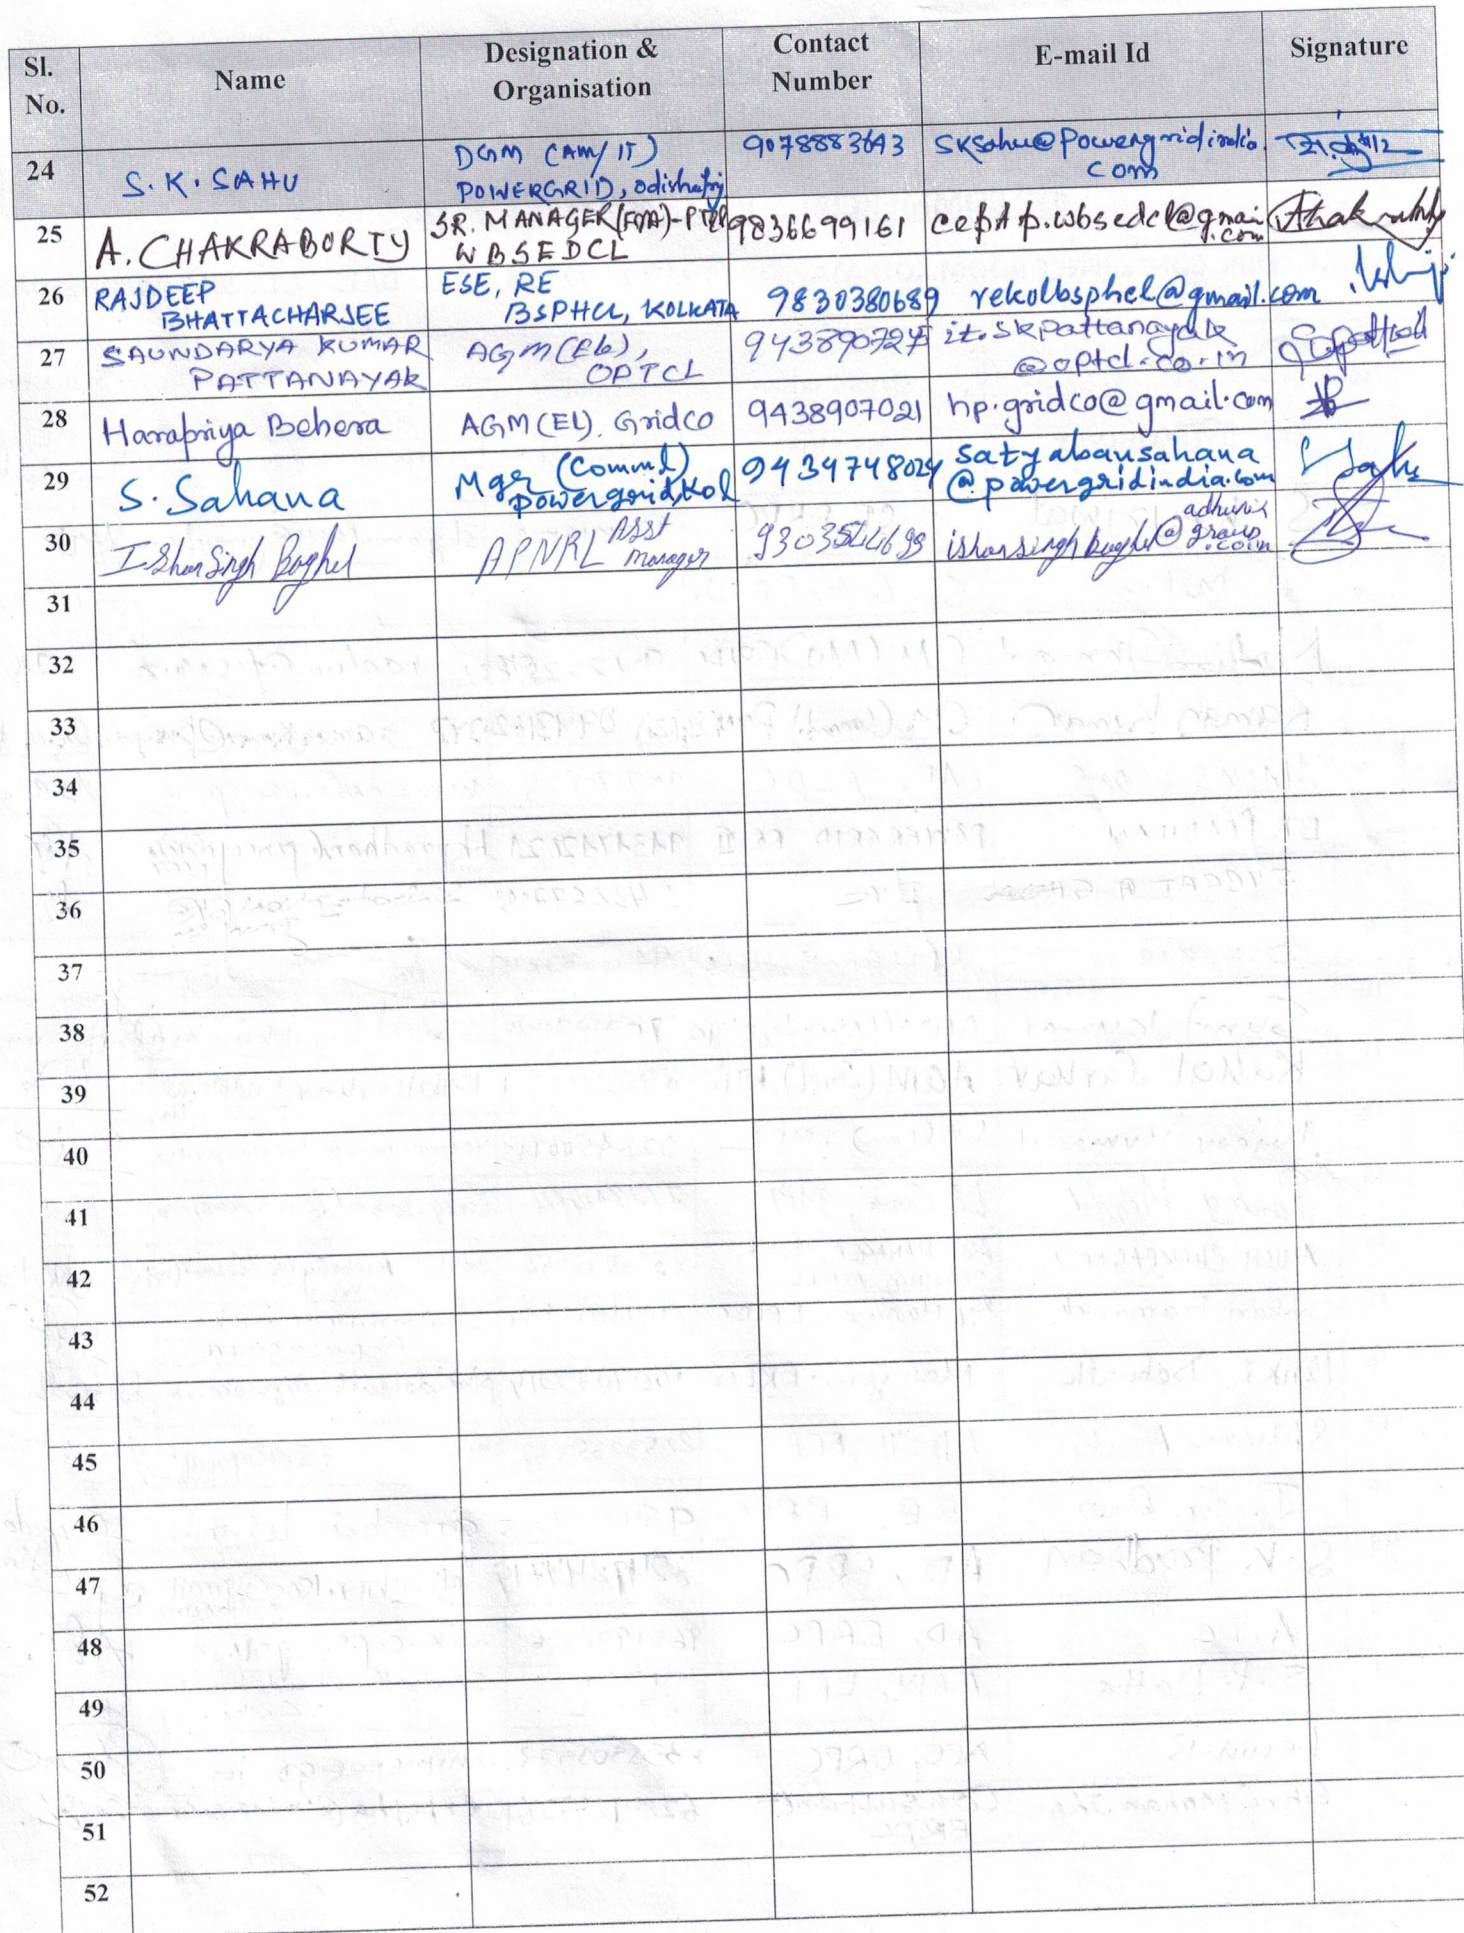 Sl. No. Name Designation & Organisation Contact Number E-mail Id Signature
24 S. K. SAHU DGM (AM/IT) POWERGRID, 9078883643 sksahu@powergridindia.com
25 A. CHAKRABORTY SR. MANAGER (F&A)- WBSEDCL 9836699161
26 RAJDEEP BHATTACHARJEE ESE, RE BSPHCL, KOLKATA 9830380689 rekolbsphcl@gmail.com
27 SAUNDARYA KUMAR PATTANAYAK AGM(EL), OPTCL it.skpattanayak@optcl.co.in
28 Harapriya Behera AGM(EL), Gridco 9438907021 hp.gridco@gmail.com
29 S. Sahana Mgr (Comml) powergrid, Kol 9434748024 satyabansahana@powergridindia.com
30 Ishan Singh Baghel APNRL Asst Manager
31
32
33
34
35
36
37
38
39
40
41
42
43
44
45
46
47
48
49
50
51
52